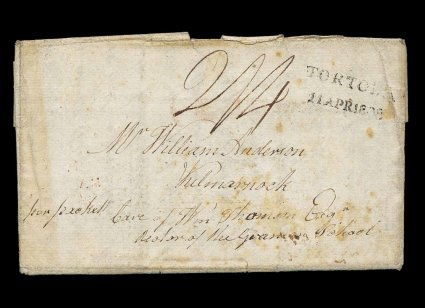 TORTOLA
11 APR 180
2/4
Mr William Anderson
Kilmarnock
per packett Care of Thomson Esqr
Rector of the Grammar School